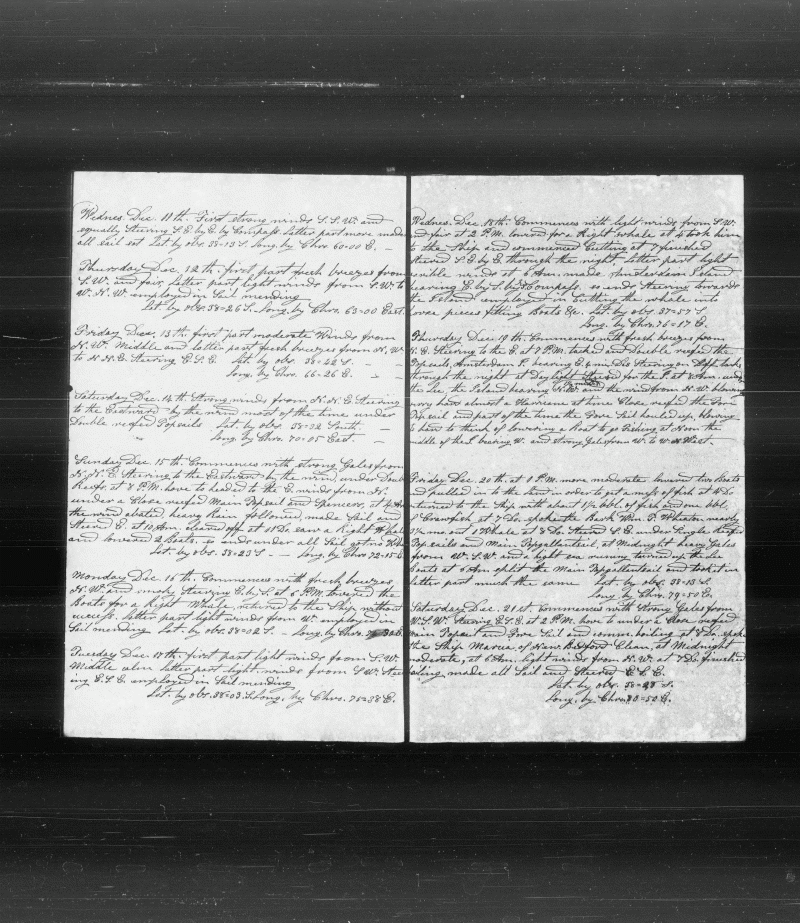 Wednes. Dec. 11th. First strong winds S.S.W. and
equally Steering S.E. by E. by Compass latter part more mode
all sail set Lat. by obs. 38=13 S. Long. by Chro. 60=00 E.
Thursday Dec. 12th. first part fresh breezes from
S.W. and fair, latter part light winds from S.W. to
W.N.W. employed in Sail mending
Lat. by obs. 38=26 S. Long. by Chro. 63=00 East.
Friday Dec. 13th. first part moderate Winds from
N.W. Middle and latter part fresh breezes from N.W.
to N.N.E. Steering E.S.E. Lat. by obs. 38=42 S.
Long. by Chro. 66=26 E.
Saturday Dec. 14th. Strong winds from N.N.E. Steering
to the Eastward by the wind most of the time under
Double reefed Topsails Lat. by obs. 38=32 South
" Long. by Chro. 70=05 East
Sunday Dec. 15th. Commences with strong Gales from
N.N.E. Steering to the Eastward by the wind, under Doub
Reefs, at 8 P.M. hove to headed to the E. winds from N.
under a Close reefed Main Topsail and Spencer, at 4 Am
the wind abated, heavy Rain followed, made Sail and
Steered E. at 10 Am. cleared off at 11 Do. saw a Right Whale
and lowered 2 Boats. so ends under all Sail
Lat. by obs. 38=23 S. Long. by Chro. 72=15 E.
Monday Dec. 16th. Commences with fresh breezes
N.W. and smoky Steering E. by S. at 6 P.M. lowered the
Boats for a Right Whale, returned to the Ship without
success. latter part light winds from W. employed in
Sail mending Lat. by obs. 38=02 S. Long. by Chro.
Tuesday Dec. 17th. first part light winds from S.W.
Middle alm latter part light winds from S.W. Steer
ing E.S.E. employed in Sail mending
Lat. by obs. 38=03 S. Long. by Chro. 75=38 E.
Wednes. Dec. 18th. Commences with light winds from S.W.
and fair at 2 P.M. lowered for a Right whale at 4 took him
to the Ship and commenced Cutting at 7 finished
Steered S.E. by E. through the night, latter part light
winds at 6 Am. made Amsterdam Island
bearing E. by S. by Compass. so ends Steering towards
the Island employed in Cutting the whale into
horse pieces fitting Boats &c. Lat. by obs. 37=57 S.
Long. by Chro. 76=17 E.
Thursday Dec. 19th. Commences with fresh breezes from
N.E. Steering to the E. at 7 P.M. tacked and Double reefed the
Topsails, Amsterdam I. bearing E. Steering on Diffr. tacks
through the night at Daylight Steered for the Lat at 8 Am. under
the Lee, the Island bearing and the wind from N.W. blowing
very hard almost a Harricane at time Close reefed the Fore
Topsail and part of the time the Fore Sail hauled up, blowing
to hard to think of lowering a Boat to go Fishing at Noon the
middle of the I. bearing W. and strong Gales from W. to W.N.West.
Friday Dec. 20th. at 1 P.M. more moderate lowered two Boats
and pulled in to the land in order to get a mess of fish at 4 Do
returned to the Ship with about 1/2 bbl. of fish and one bbl.
of Crawfish at 7 Do. spoke the Bark Wm. T. Wheaton nearly
mo. out 1 Whale at 8 Do. Steered S.E. under Single Reefed
Topsails and Main Topgallantsail, at Midnight heavy Gales
from W.S.W. and a light sea running turned up the lee
Boats at 6 Am split the Main Topgallantsail and took it in
latter part much the same Lat. by obs. 38=13 S.
Long. by Chro. 79=50 Es
Saturday Dec. 21st. Commences with Strong Gales from
W.S.W. Steering E.S.E. at 2 P.M. hove to under a Close reefed
main Topsail and Fore Sail and comm. boiling at 8 Do. spoke
the Ship Marcia of New Bedford Clean, at Midnight
moderate, at 6 Am. light winds from N.W. at 7 Do. finished
boiling made all Sail and Steered E.S.E.
Lat. by obs. 38=28 S.
Long. by Chro. 80=50 E.